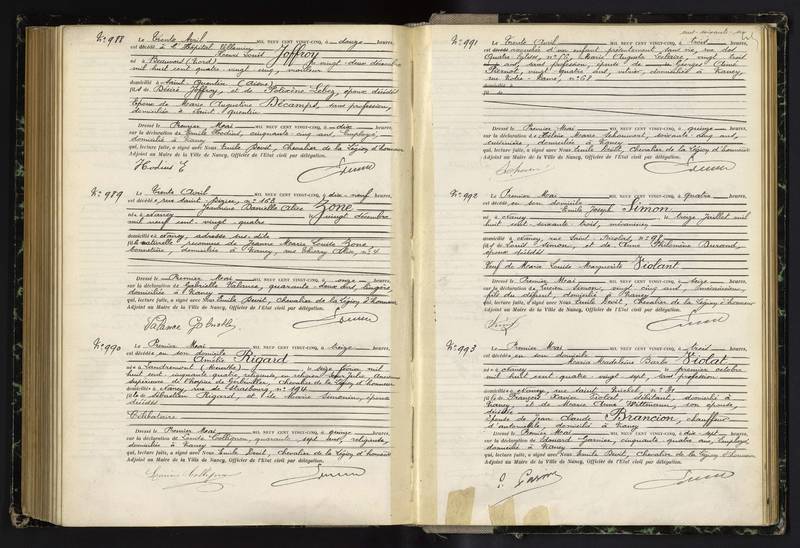 N° 988 Le Trente Avril MIL NEUF CENT VINGT-CINQ, à douze heures,
est décédé à l'Hôpital Villemin
Joffroy
né à Beaumont (Nord) le vingt deux décembre
mil huit cent quatre vingt cinq,
domicilié à Saint Quentin (Aisne)
fils de Désiré Joffroy, et de époux décédés
Epoux de Marie Augustine Décamps, sans profession,
domiciliée à Saint Quentin
Dressé le Premier Mai MIL NEUF CENT VINGT-CINQ, à dix heures,
sur la déclaration de Emile Hodius, cinquante cinq ans, employé,
domicilié à Nancy
qui, lecture faite, a signé avec Nous Emile Devit, Chevalier de la Légion d'honneur
Adjoint au Maire de la Ville de Nancy, Officier de l'Etat civil par délégation.
Hodius E
N° 989 Le Trente Avril MIL NEUF CENT VINGT-CINQ, à dix neuf heures,
est décédée rue Saint Dizier, n° 163
Jeannine Danielle Alice Zone
née à Nancy le vingt décembre
mil neuf cent vingt quatre
domiciliée à Nancy, adresse sus dite
fille naturelle reconnue de Jeanne Marie Louise Zone
domiciliée à Nancy, rue n° 4
Dressé le Premier Mai MIL NEUF CENT VINGT-CINQ, à onze heures,
sur la déclaration de Gabrielle Valance, quarante deux ans, lingère
domiciliée à Nancy
qui, lecture faite, a signé avec Nous Emile Devit, Chevalier de la Légion d'honneur
Adjoint au Maire de la Ville de Nancy, Officier de l'Etat civil par délégation.
N° 990 Le Premier Mai MIL NEUF CENT VINGT-CINQ, à treize heures,
est décédée en son domicile
Amélie Rigard
née à Landremont (Meurthe) le seize février mil
huit cent cinquante quatre, religieuse, en religion Sœur Julie,
supérieure de l'hospice de Gerbéviller, Chevalier de la Légion d'honneur
domiciliée à Nancy, rue de Strasbourg, n° 194
fille de Sébastien Rigard, et de Marie époux
décédés
Célibataire
Dressé le Premier Mai MIL NEUF CENT VINGT-CINQ, à quinze heures,
sur la déclaration de Louise Collignon, quarante sept ans, religieuse,
domiciliée à Nancy
qui, lecture faite, a signé avec Nous Emile Devit, Chevalier de la Légion d'honneur
Adjoint au Maire de la Ville de Nancy, Officier de l'Etat civil par délégation.
Louise Collignon
cent soixante six
N° 991 Le Trente Avril MIL NEUF CENT VINGT-CINQ, à trois heures,
est accouchée d'un enfant présentement sans vie, rue des
Quatre Eglises, n° Marie Augusta vingt trois
ans, sans profession, épouse de Georges
vingt quatre ans, domicilié à Nancy,
rue Notre Dame, n° 68
domicilié à
Dressé le Premier Mai MIL NEUF CENT VINGT-CINQ, à quinze heures,
sur la déclaration de Hélène Marie soixante cinq ans,
domiciliée à Nancy
qui, lecture faite, a signé avec Nous Emile Devit, Chevalier de la Légion d'honneur
Adjoint au Maire de la Ville de Nancy, Officier de l'Etat civil par délégation.
N° 992 Le Premier Mai MIL NEUF CENT VINGT-CINQ, à quatre heures,
est décédé en son domicile
Emile Joseph Simon
né à Nancy le treize Juillet mil
huit cent soixante trois, mécanicien
domicilié à Nancy, rue Saint Nicolas, n° 98
fils de Louis Simon, et de Anne Philomène Durand,
époux décédés
Veuf de Marie Louise Marguerite Violant
Dressé le Premier Mai MIL NEUF CENT VINGT-CINQ, à seize heures,
sur la déclaration de Simon, vingt cinq ans,
fils du défunt, domicilié à Nancy
qui, lecture faite, a signé avec Nous Emile Devit, Chevalier de la Légion d'honneur
Adjoint au Maire de la Ville de Nancy, Officier de l'Etat civil par délégation.
N° 993 Le Premier Mai MIL NEUF CENT VINGT-CINQ, à trois heures,
est décédée en son domicile
Marie Madeleine Violat
née à Nancy le premier octobre
mil huit cent quatre vingt sept, sans profession
domiciliée à Nancy, rue Saint Michel, n°
fille de François Xavier Violat, débitant, domicilié à
Nancy, et de Marie Anne Wittmann, son épouse,
décédée
Epouse de Jean Claude Brancion, chauffeur
d'automobile, domicilié à Nancy
Dressé le Premier Mai MIL NEUF CENT VINGT-CINQ, à dix sept heures,
sur la déclaration de Edouard Garnier, cinquante quatre ans, employé,
domicilié à Nancy
qui, lecture faite, a signé avec Nous Emile Devit, Chevalier de la Légion d'honneur
Adjoint au Maire de la Ville de Nancy, Officier de l'Etat civil par délégation.